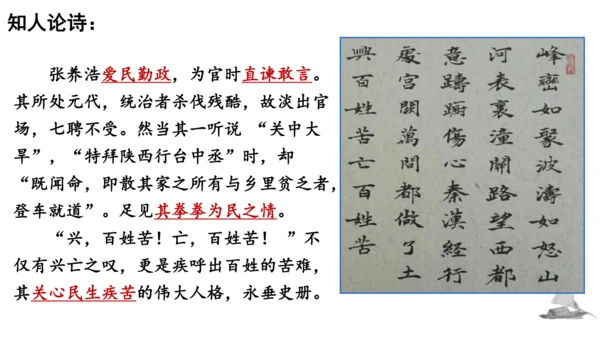 知人论诗：
张养浩爱民勤政，为官时直谏敢言。
其所处元代，统治者杀伐残酷，故淡出官
场，七聘不受。然当其一听说 “关中大
旱”，“特拜陕西行台中丞”时，却
“既闻命，即散其家之所有与乡里贫乏者，
登车就道”。足见其拳拳为民之情。
“兴，百姓苦！亡，百姓苦！ ”不
仅有兴亡之叹，更是疾呼出百姓的苦难，
其关心民生疾苦的伟大人格，永垂史册。
峰巒如聚波濤如怒山
河表裏潼關路望西都
意躊躕傷心秦漢經行
處宮闕萬間都做了土
興百姓苦亡百姓苦